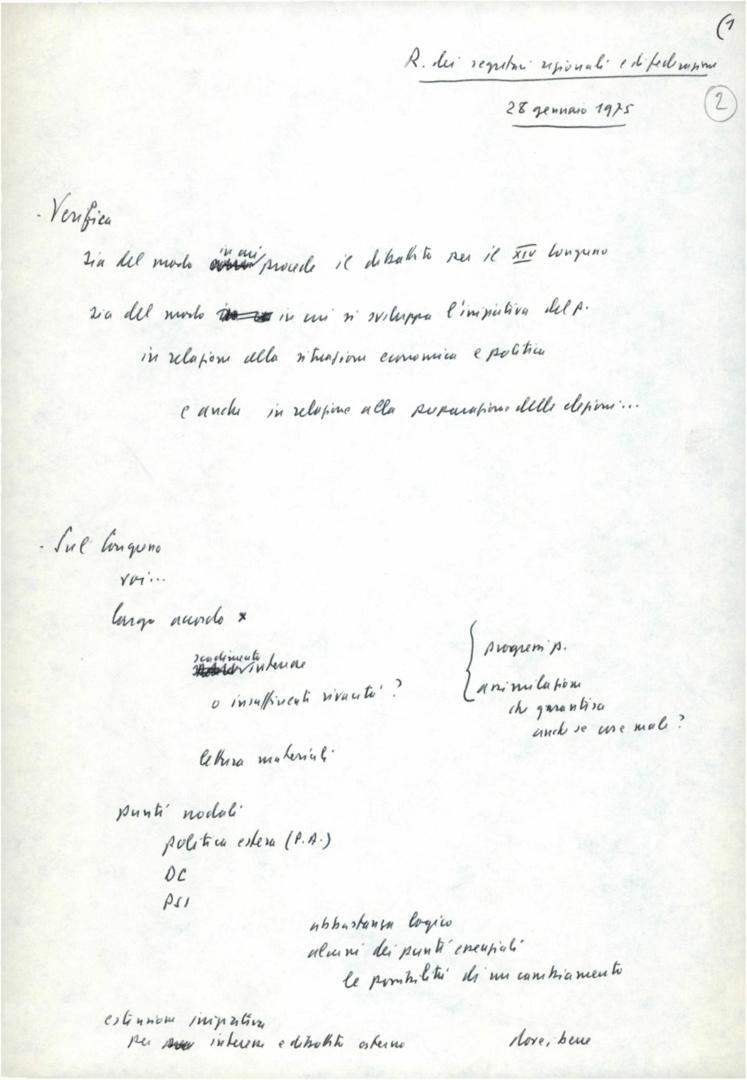 (1
R. dei segretari regionali e di federazione
28 gennaio 1975
2
- Verifica
sia del modo in cui procede il dibattito per il XIV Congresso
sia del modo in cui si sviluppa l'iniziativa del p.
in relazione alla situazione economica e politica
e anche in relazione alla preparazione delle elezioni...
- Sul Congresso
voi...
largo accordo x
interesse
o insufficienti vivacità?
lettura materiali
progressi p.
assimilazione
che garantisca
anche se cose male?
punti nodali
politica estera (P.A.)
DC
PSI
abbastanza logico
alcuni dei punti essenziali
le possibilità di un cambiamento
estensione iniziativa
per interesse e dibattito esterno
dove, bene